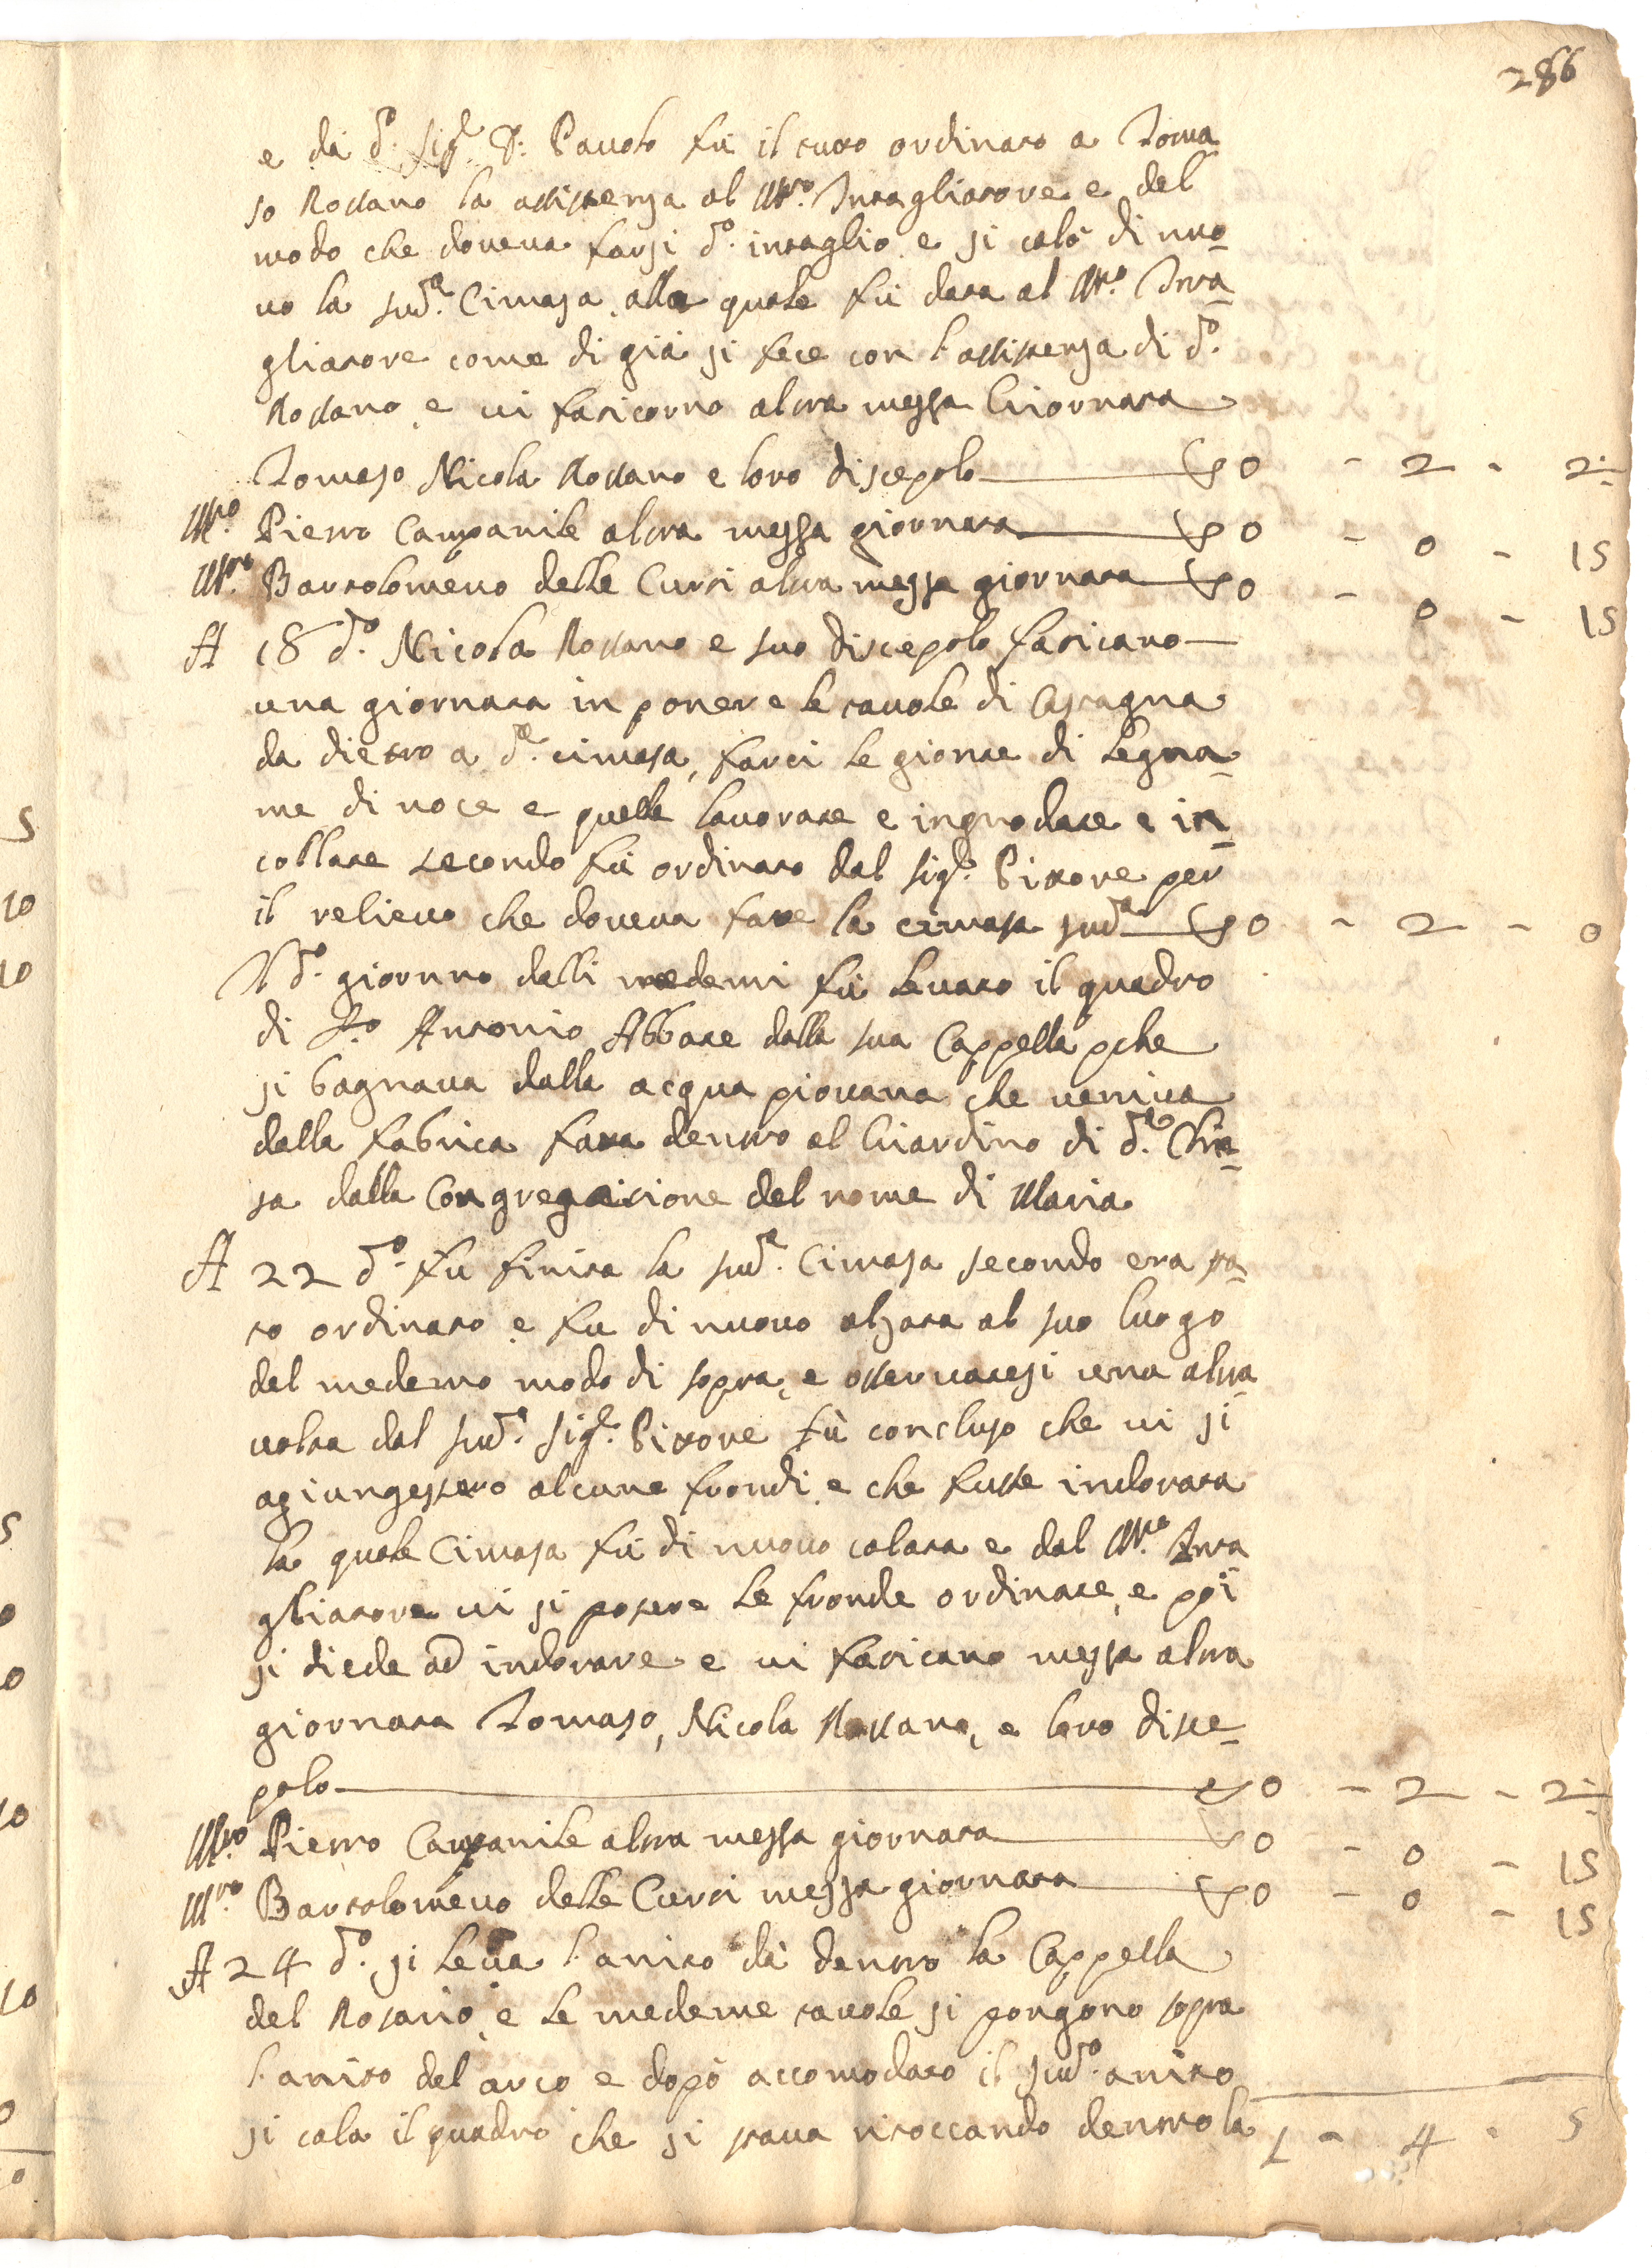 286
e da d.º Sig.r D: Pauolo fù il tutto ordinato a Toma
so Rossano la assistenza al M.ro Intagliatore e del
modo che doueua farsi d.º intaglio, e si calò di nuo
uo la sud.a Cimasa, alla quale fù data al M.ro Inta
gliatore come di già si fece con l'assistenza di d.º
Rossano, e ui faticorno altra mezza Giornata
Tomaso Nicola Rossano e loro discepolo 0 - 2 - 2½
M.ro Pietro Campanile altra mezza giornata 0 - 0 - 15
M.ro Bartolomeuo delle Curti altra mezza giornata 0 - 0 - 15
A 18 d.º Nicola Rossano e suo discepolo faticano
una giornata in ponere le tauole di Castagna
da dietro a d.a cimasa, farci le gionte di legna
me di noce e quelle lauorate e ingnodate e in
collate secondo fù ordinato dal Sig.r Pittore per
il relieuo che doueua fare la cimasa sud.a 0 - 2 - 0
Il d.º giornno dalli medemi fù leuato il quadro
di S.to Antonio Abbate dalla sua Cappella pche
si bagnaua dalla acqua piouana che ueniua
dalla fabrica fatta dentro al Giardino di d.a Chie
sa dalla Congregatione del nome di Maria
A 22 d.º fù finita la sud.a Cimasa secondo era sta
to ordinato e fu di nuouo alzata al suo luogo
del medemo modo di sopra, e osseruatesi una altra
uolta dal sud.º Sig.r Pittore fù concluso che ui si
agiungessero alcune frondi, e che fusse indorata
la quale Cimasa fù di nuouo calata e dal M.ro Inta
gliatore ui si posere le fronde ordinate, e poi
si diede ad indorare e ui faticano mezza altra
giornata Tomaso, Nicola Rossano, e loro disce
polo 0 - 2 - 2½
M.ro Pietro Campanile altra mezza giornata 0 - 0 - 15
M.ro Bartolomeuo delle Curti mezza giornata 0 - 0 - 15
A 24 d.º si leua l'anito da dentro la Cappella
del Rosario, e le medeme tauole si pongono sopra
l'anito del arco e dopò accomodato il sud.º anito
si cala il quadro che si staua ritoccando dentro la
1 - 4 - 5